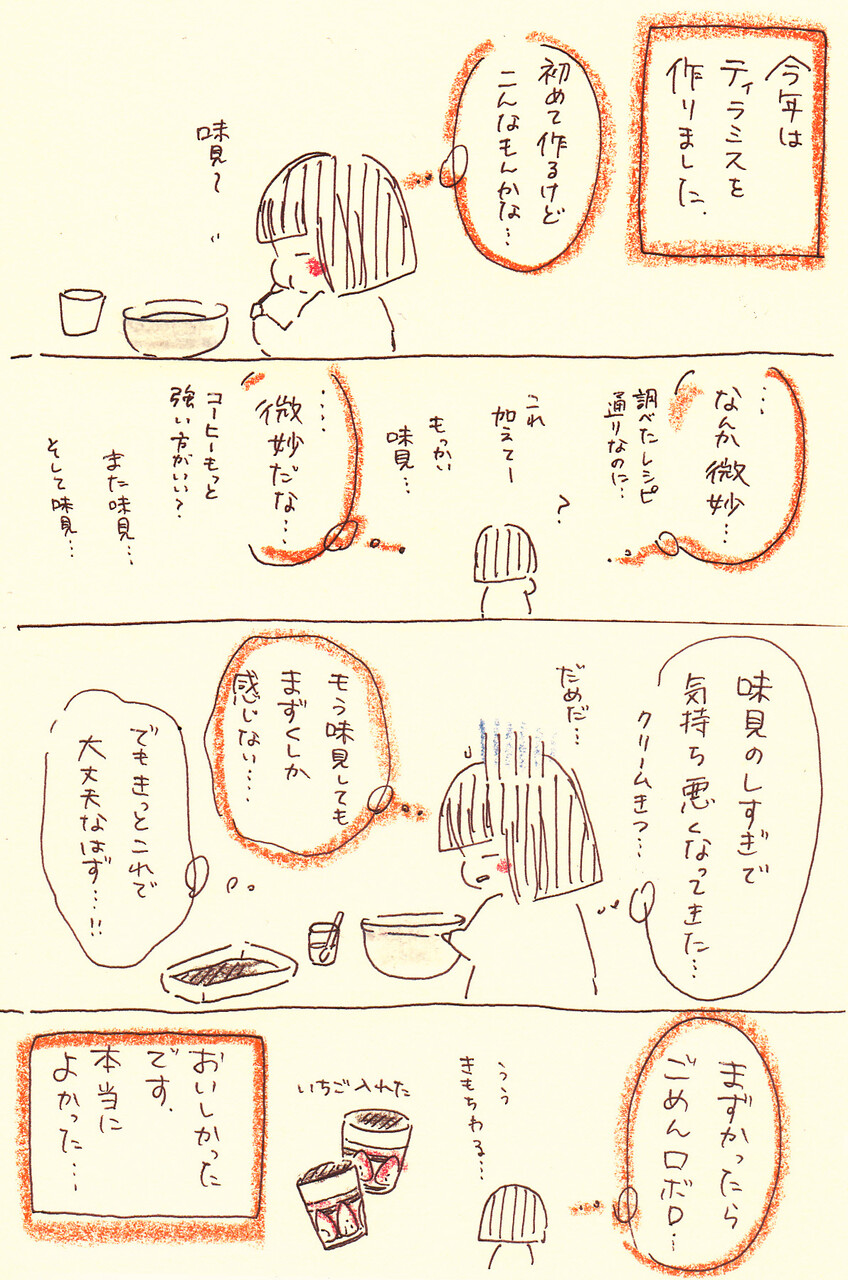 今年は
ティラミスを
作りました.
初めて作るけど
こんなもんかな…
味見〜
…
なんか微妙…
調べたレシピ
通りなのに…
?
これ
加えてー
もっかい
味見…
‥‥
微妙だな…
コーヒーもっと
強い方がいい?
また味見…
そして味見…
味見のしすぎで
気持ち悪くなってきた…
クリームきつ…
だめだ…
もう味見しても
まずくしか
感じない‥‥
でもきっとこれで
大丈夫なはず…!!
まずかったら
ごめんロボロ…
うう
きもちわる…
いちご入れた
おいしかった
です.
本当に
よかった…